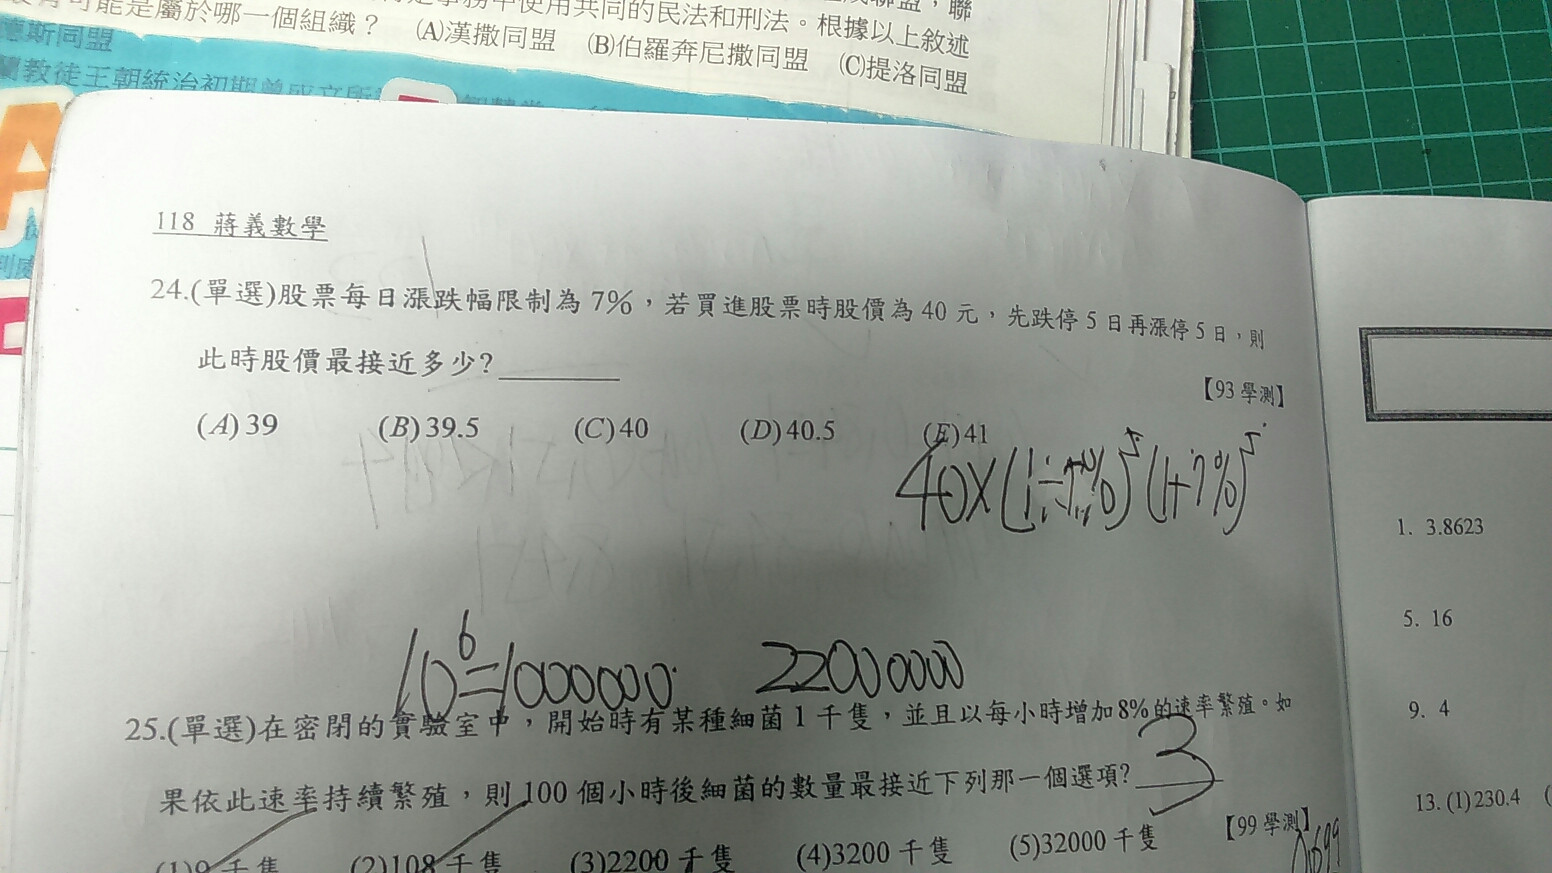 使用共同的民法和刑法。根據以上敘述
可能是屬於哪一個組織？ (A)漢撒同盟 (B)伯羅奔尼撒同盟 (C)提洛同盟
斯同盟
教徒王朝統治初期曾
A
118 蔣義數學
24.(單選)股票每日漲跌幅限制為 7%，若買進股票時股價為 40 元，先跌停 5 日再漲停 5 日，則
此時股價最接近多少?
【93 學測】
(A)39 (B)39.5 (C)40 (D)40.5 (E)41
40×(1-7%)^5(1+7%)^5
10^6=1000000 22000000
25.(單選)在密閉的實驗室中，開始時有某種細菌 1 千隻，並且以每小時增加8%的速率繁殖。如
果依此速率持續繁殖，則 100 個小時後細菌的數量最接近下列那一個選項? 3
【99 學測】
(1)9 千隻 (2)108 千隻 (3)2200 千隻 (4)3200 千隻 (5)32000 千隻
1. 3.8623
5. 16
9. 4
13. (1)230.4